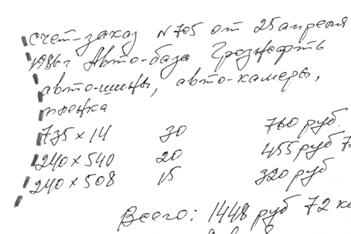 счет-заказ №705 от 25 апреля
1986г Авто-база Грознефть
авто-шины, авто-камеры,
735 × 14 30 760 руб.
240 × 540 20 455 руб 7
240 × 508 15 320 руб
Всего: 1448 руб 72 к